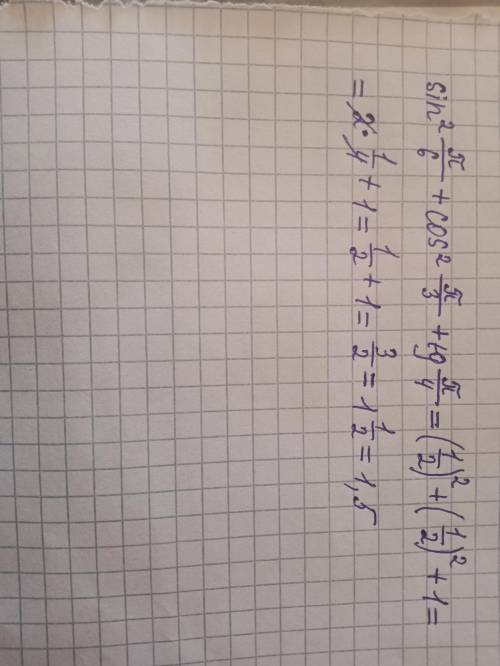 sin² π/6 + cos² π/3 + tg π/4 = (1/2)² + (1/2)² + 1 =
= 2 · 1/4 + 1 = 1/2 + 1 = 3/2 = 1 1/2 = 1,5